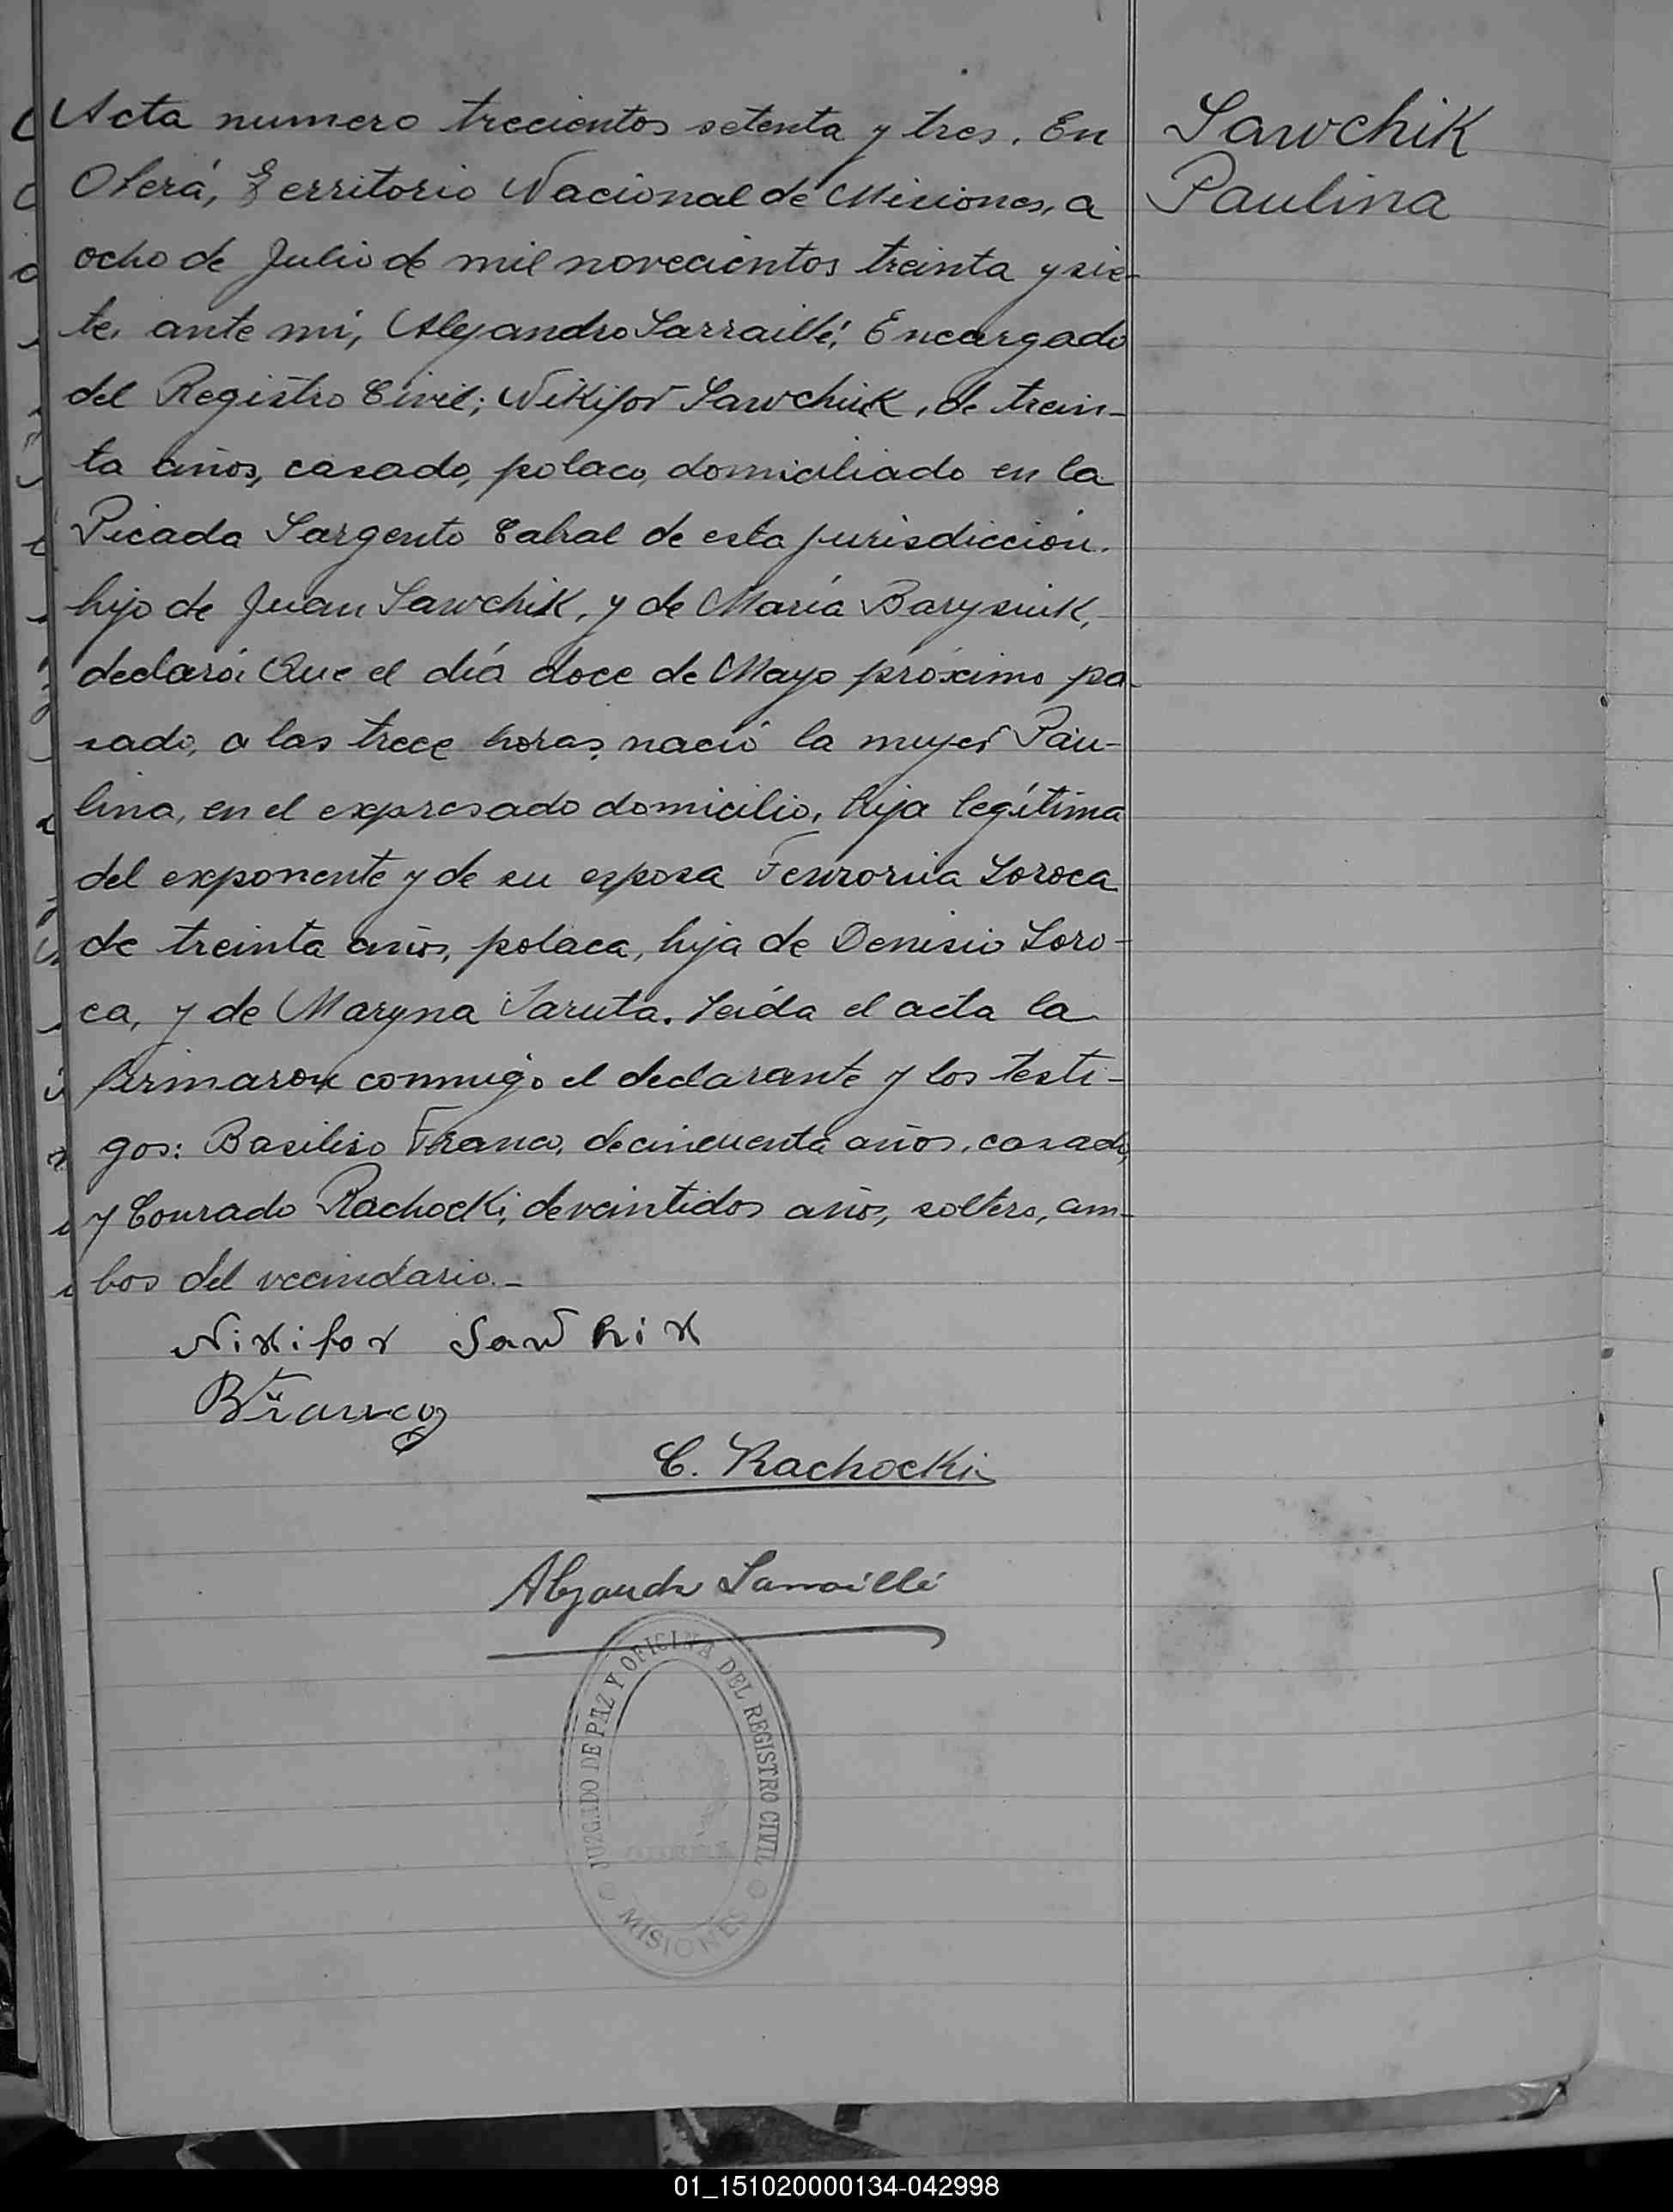 Acta numero trecientos setenta y tres. En
Oberá, Territorio Nacional de Misiones, a
ocho de Julio de mil novecientos treinta y sie-
te, ante mi, Alejandro Sarraillé, Encargado
del Registro Civil; Nikifor Sawchik, de trein-
ta años, casado, polaco, domiciliado en la
Picada Sargento Cabral de esta jurisdicción.
hijo de Juan Sawchik, y de María Barysiuk,
declaró: Que el día doce de Mayo próximo pa-
sado, a las trece horas, nació la mujer Pau-
lina, en el expresado domicilio, hija legítima
del exponente y de su esposa Soroca
de treinta años, polaca, hija de Denisio Soro-
ca, y de Maryna Jaruta. Leída el acta la
firmaron conmigo el declarante y los testi-
gos: Basiliso Franco, de cincuenta años, casado,
y Conrado Rachocki, de veintidos años, soltero, am-
bos del vecindario.-
Nikifor Sawhik
BFranco
C. Rachocki
Alejandro Sarraillé
JUZGADO DE PAZ Y OFICINA DEL REGISTRO CIVIL
MISIONES
Sawchik
Paulina
01_151020000134-042998